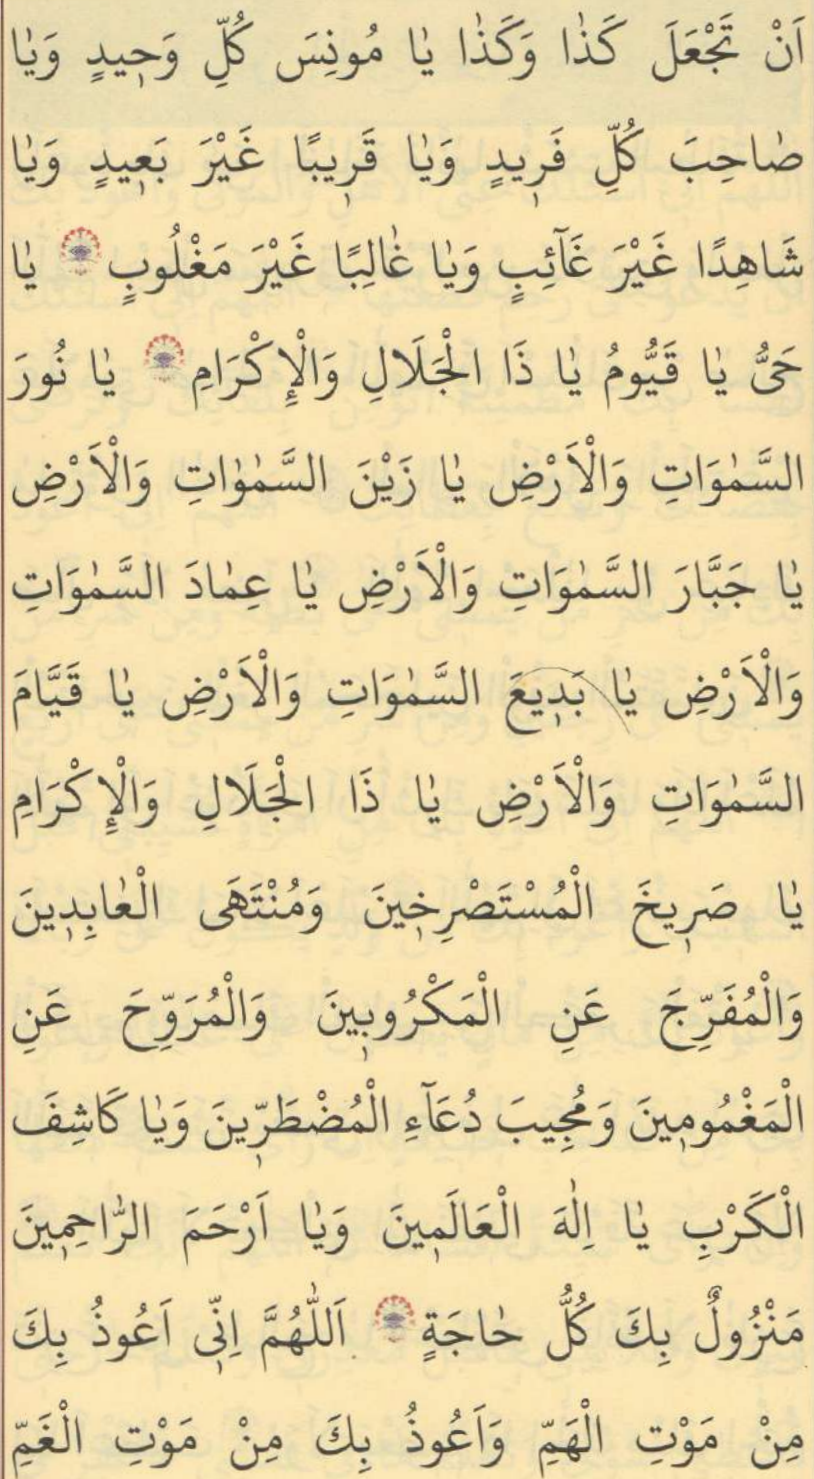 اَنْ تَجْعَلَ كَذٰا وَكَذٰا يٰا مُونِسَ كُلِّ وَحٖيدٍ وَيٰا
صٰاحِبَ كُلِّ فَرٖيدٍ وَيٰا قَرٖيبًا غَيْرَ بَعٖيدٍ وَيٰا
شَاهِدًا غَيْرَ غَآئِبٍ وَيٰا غٰالِبًا غَيْرَ مَغْلُوبٍ يٰا
حَىُّ يٰا قَيُّومُ يٰا ذَا الْجَلَالِ وَالْاِكْرَامِ يٰا نُورَ
السَّمٰوَاتِ وَالْاَرْضِ يٰا زَيْنَ السَّمٰوٰاتِ وَالْاَرْضِ
يٰا جَبَّارَ السَّمٰوَاتِ وَالْاَرْضِ يٰا عِمٰادَ السَّمٰوَاتِ
وَالْاَرْضِ يٰا بَدٖيعَ السَّمٰوَاتِ وَالْاَرْضِ يٰا قَيَّامَ
السَّمٰوَاتِ وَالْاَرْضِ يٰا ذَا الْجَلَالِ وَالْاِكْرَامِ
يٰا صَرٖيخَ الْمُسْتَصْرِخٖينَ وَمُنْتَهَى الْعٰابِدٖينَ
وَالْمُفَرِّجَ عَنِ الْمَكْرُوبٖينَ وَالْمُرَوِّحَ عَنِ
الْمَغْمُومٖينَ وَمُجٖيبَ دُعَآءِ الْمُضْطَرّٖينَ وَيٰا كَاشِفَ
الْكَرْبِ يٰا اِلٰهَ الْعَالَمٖينَ وَيٰا اَرْحَمَ الرّٰاحِمٖينَ
مَنْزُولٌ بِكَ كُلُّ حٰاجَةٍ اَللّٰهُمَّ اِنّٖى اَعُوذُ بِكَ
مِنْ مَوْتِ الْهَمِّ وَاَعُوذُ بِكَ مِنْ مَوْتِ الْغَمِّ